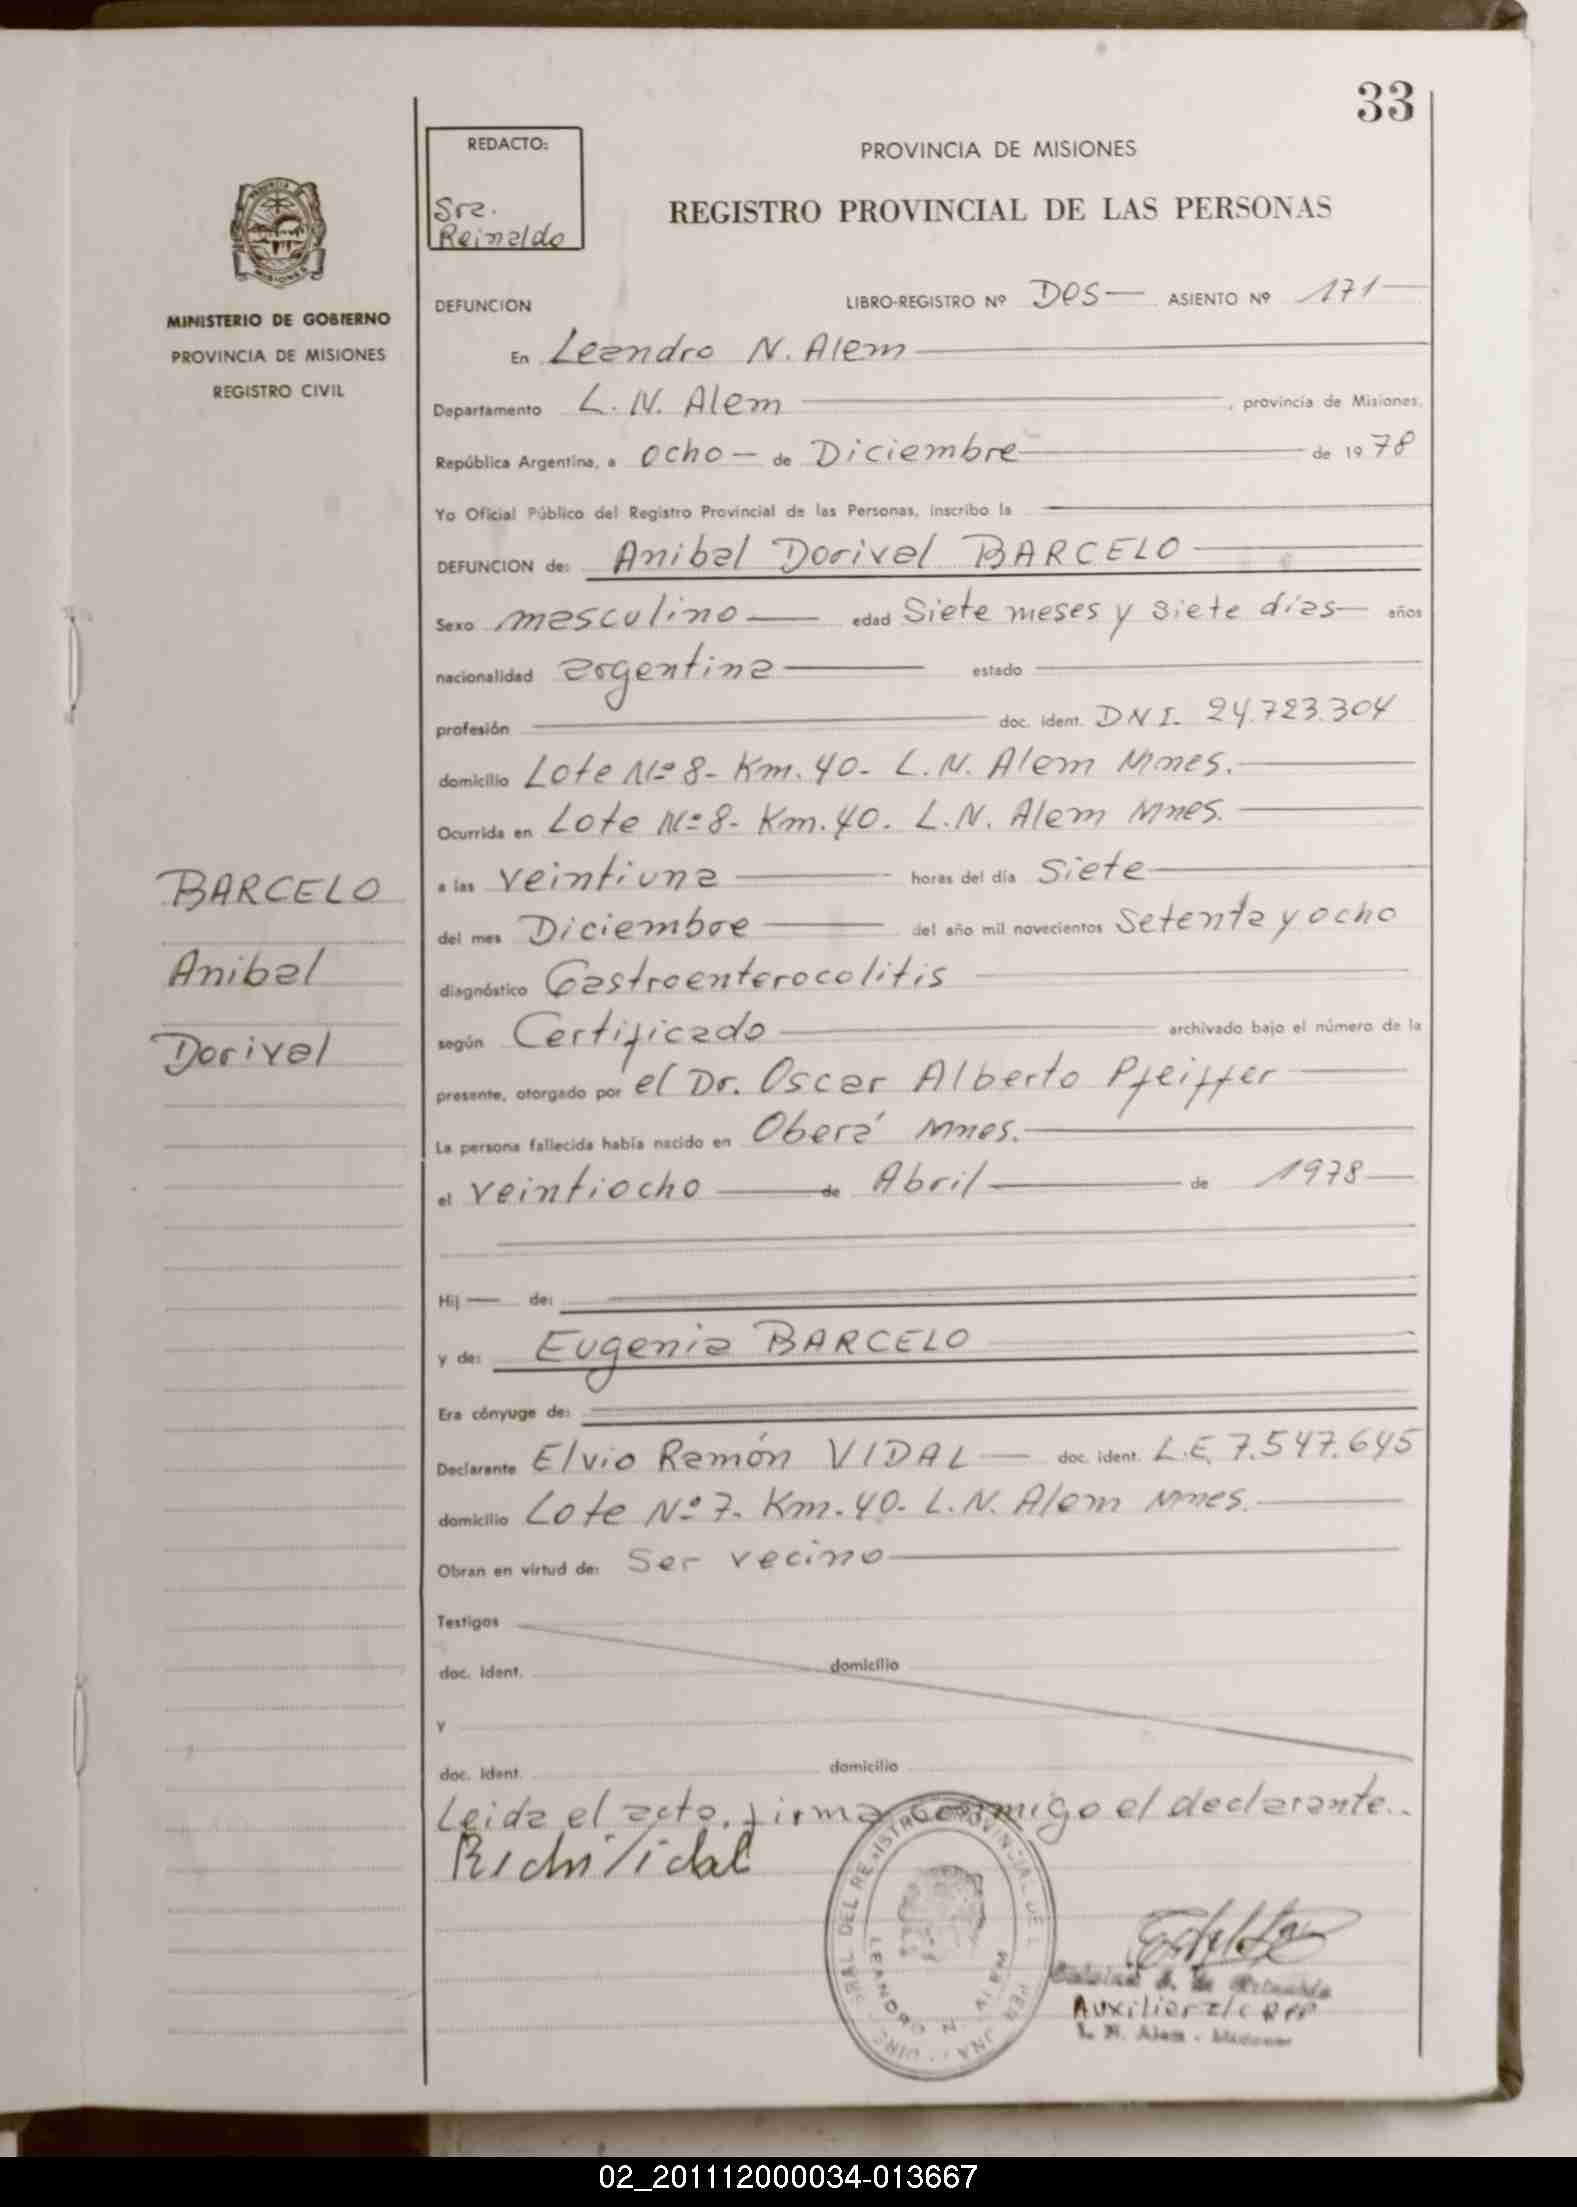 33
REDACTO:
Sra.
Reinaldo
PROVINCIA DE MISIONES
REGISTRO PROVINCIAL DE LAS PERSONAS
MINISTERIO DE GOBIERNO
PROVINCIA DE MISIONES
REGISTRO CIVIL
DEFUNCION LIBRO-REGISTRO Nº Dos— ASIENTO Nº 171—
En Leandro N. Alem
Departamento L. N. Alem , provincia de Misiones,
República Argentina, a ocho — de Diciembre de 1978
Yo Oficial Público del Registro Provincial de las Personas, inscribo la
DEFUNCION de: Anibal Dorival BARCELO
Sexo masculino edad Siete meses y siete días años
nacionalidad argentina estado
profesión doc. ident. DNI. 24.723.304
domicilio Lote Nº 8- Km. 40- L.N. Alem Mnes.
Ocurrida en Lote Nº 8- Km. 40. L.N. Alem Mnes.
a las veintiuna horas del día Siete
del mes Diciembre del año mil novecientos Setenta y ocho
diagnóstico Gastroenterocolitis
según Certificado archivado bajo el número de la
presente, otorgado por el Dr. Oscar Alberto Pfeiffer
La persona fallecida había nacido en Oberá Mnes.
el veintiocho de Abril de 1978
BARCELO
Anibal
Dorival
Hij — de:
y de: Eugenia BARCELO
Era cónyuge de:
Declarante Elvio Ramón VIDAL — doc. ident. L.E. 7.547.645
domicilio Lote Nº 7. Km. 40. L.N. Alem Mnes.
Obran en virtud de: Ser vecino
Testigos
doc. ident. domicilio
y
doc. ident. domicilio
Leida el acta, firma conmigo el declarante..
Vidal
LEANDRO N. ALEM
Auxiliar
L. N. Alem - Misiones
02_201112000034-013667